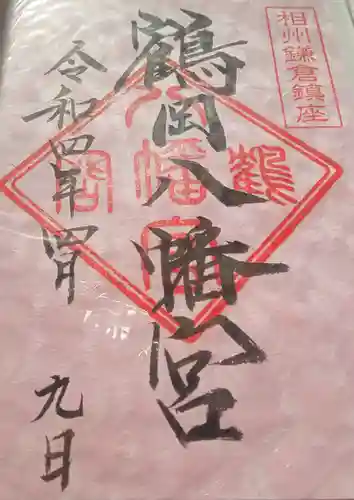 相州鎌倉鎮座
鶴岡八幡宮
令和四年四月
九日
鶴岡八幡宮